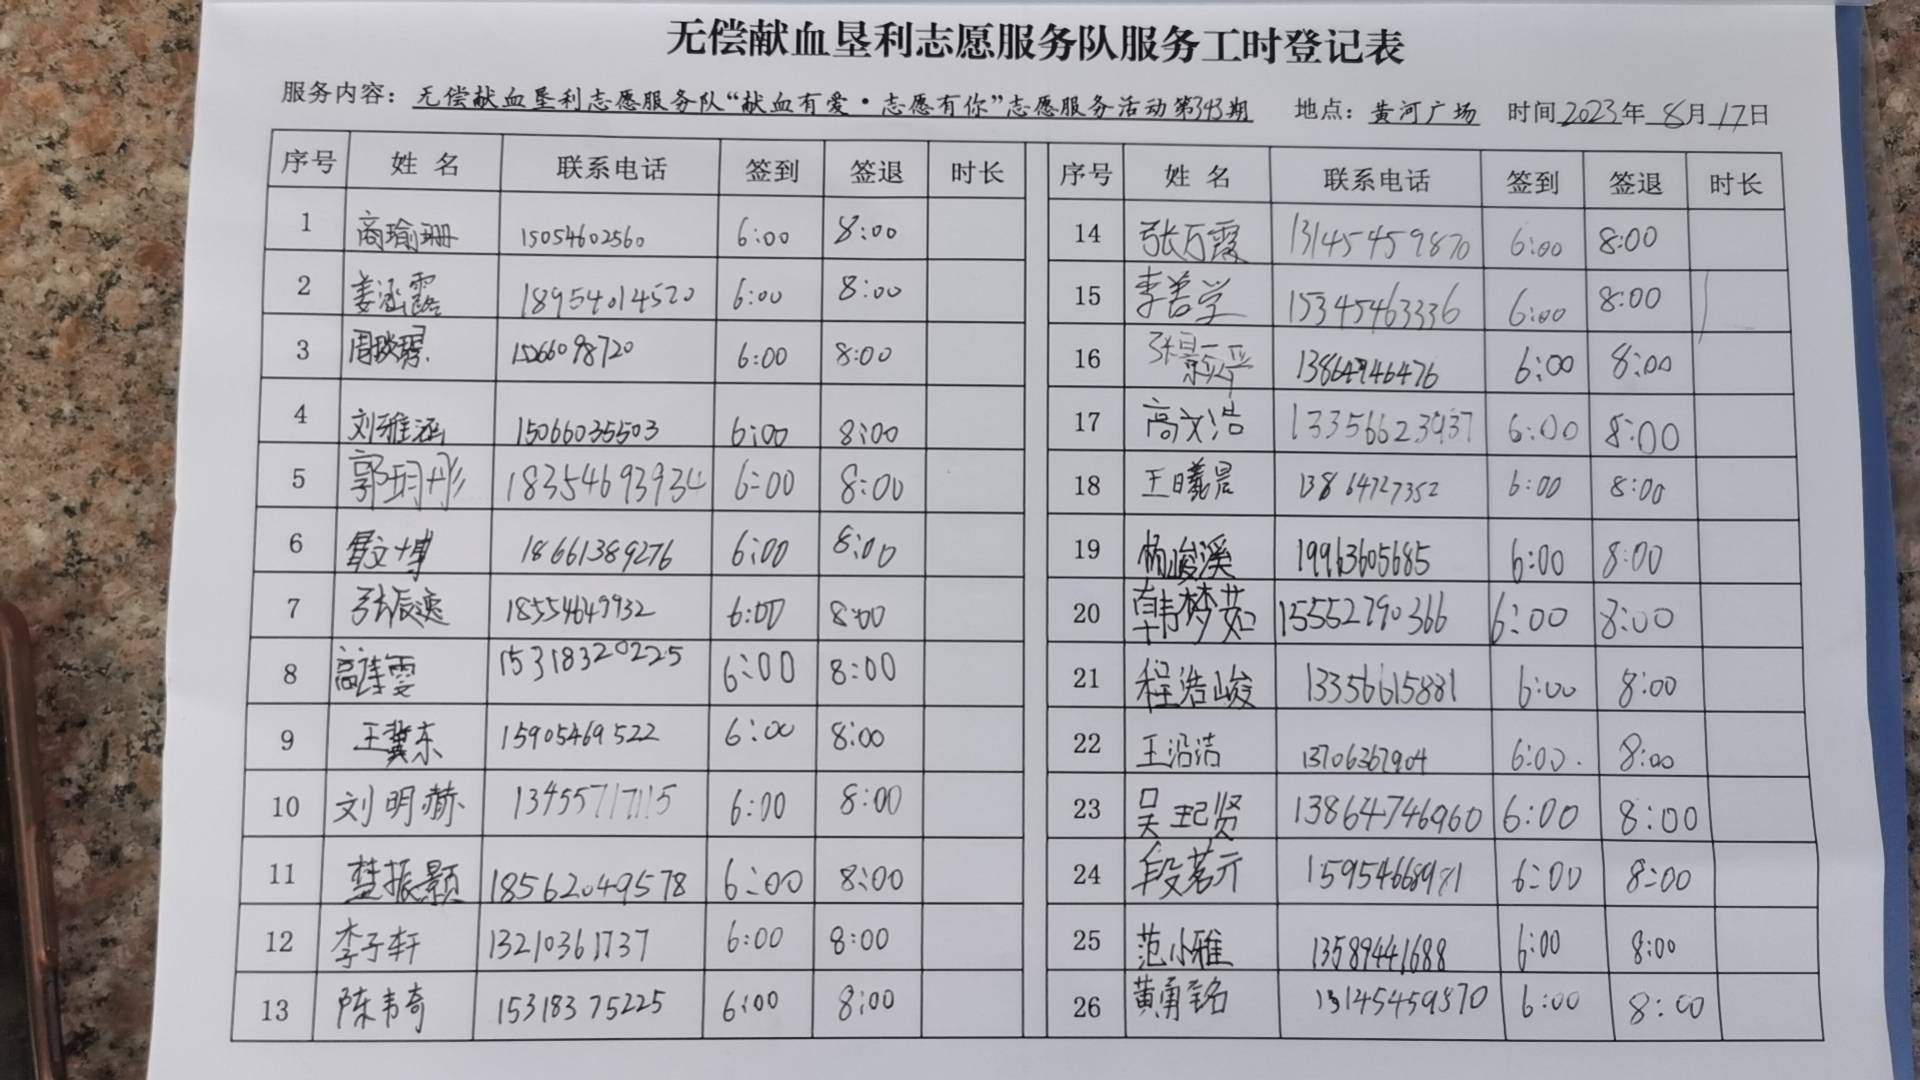 无偿献血垦利志愿服务队服务工时登记表
服务内容：无偿献血垦利志愿服务队“献血有爱·志愿有你”志愿服务活动第343期 地点：黄河广场 时间2023年8月17日
序号 姓名 联系电话 签到 签退 时长 序号 姓名 联系电话 签到 签退 时长
1 商瑜珊 15054602560 6:00 8:00 14 张万霞 13145459870 6:00 8:00
2 姜涵露 18954014520 6:00 8:00 15 李善学 15345463336 6:00 8:00
3 15266098720 6:00 8:00 16 13864946476 6:00 8:00
4 刘雅涵 15066035503 6:00 8:00 17 高文浩 13356623937 6:00 8:00
5 郭玥彤 18354693934 6:00 8:00 18 王曦晨 13864727352 6:00 8:00
6 18661389276 6:00 8:00 19 杨峻溪 19963605685 6:00 8:00
7 张宸逸 18554649932 6:00 8:00 20 韩梦茹 15552790366 6:00 8:00
8 高佳雯 15318320225 6:00 8:00 21 程浩峻 13356615881 6:00 8:00
9 王冀东 15905469522 6:00 8:00 22 王沿洁 13706367904 6:00 8:00
10 刘明赫 13455717115 6:00 8:00 23 吴玘贤 13864746960 6:00 8:00
11 楚振颢 18562049578 6:00 8:00 24 段茗亓 15954668981 6:00 8:00
12 李子轩 13210361737 6:00 8:00 25 范小雅 13589441688 6:00 8:00
13 陈韦奇 15318375225 6:00 8:00 26 黄勇铭 13145459870 6:00 8:00